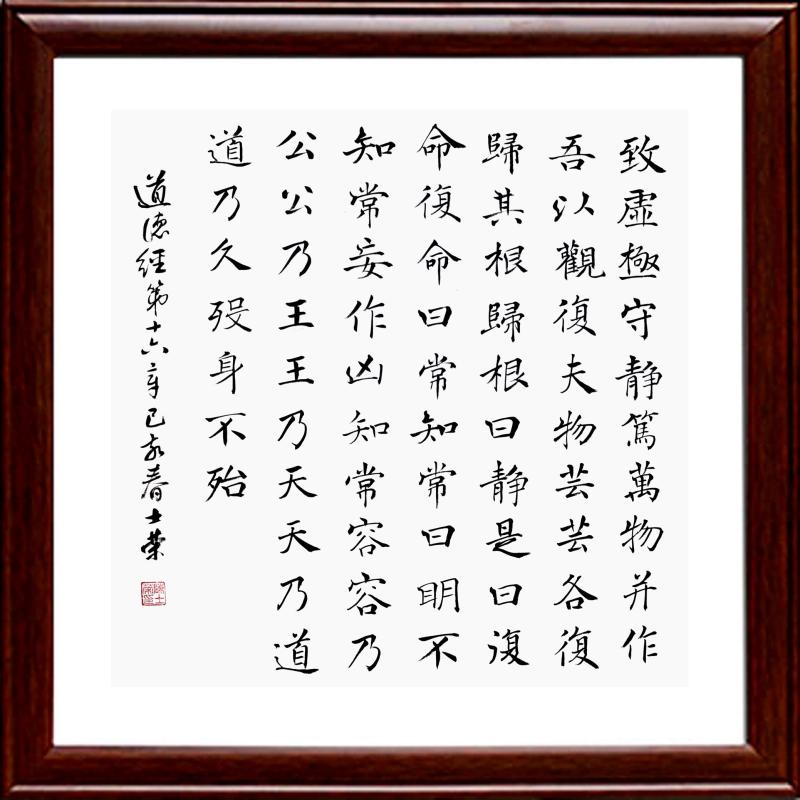 致虛極守静篤萬物并作
吾以觀復夫物芸芸各復
歸其根歸根曰静是曰復
命復命曰常知常曰明不
知常妄作凶知常容容乃
公公乃王王乃天天乃道
道乃久殁身不殆
道德經第十六章己亥春士榮